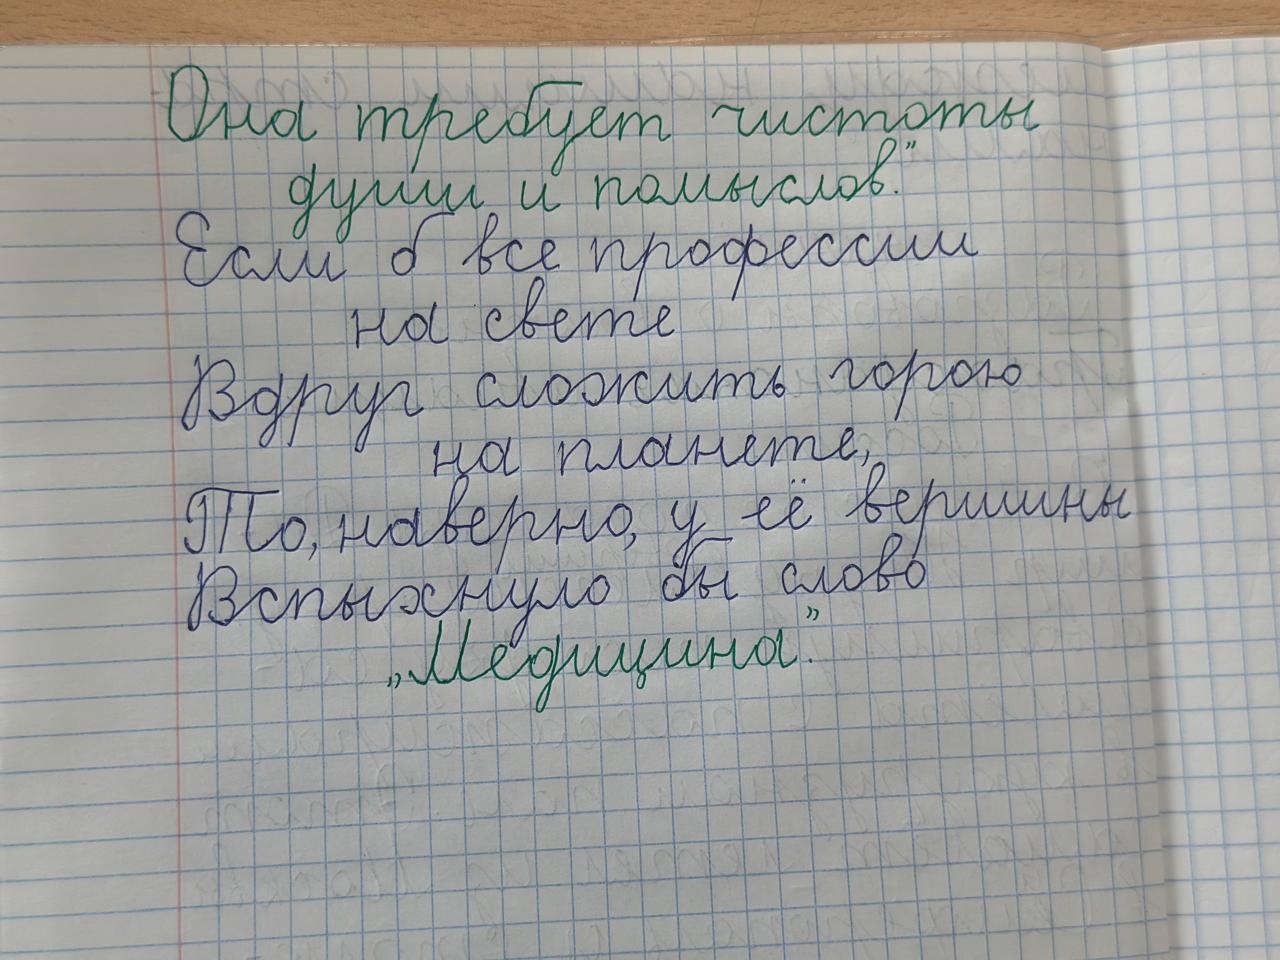 Она требует чистоты
души и помыслов."
Если б все профессии
на свете
Вдруг сложить горою
на планете,
То, наверно, у её вершины
Вспыхнуло бы слово
„Медицина."